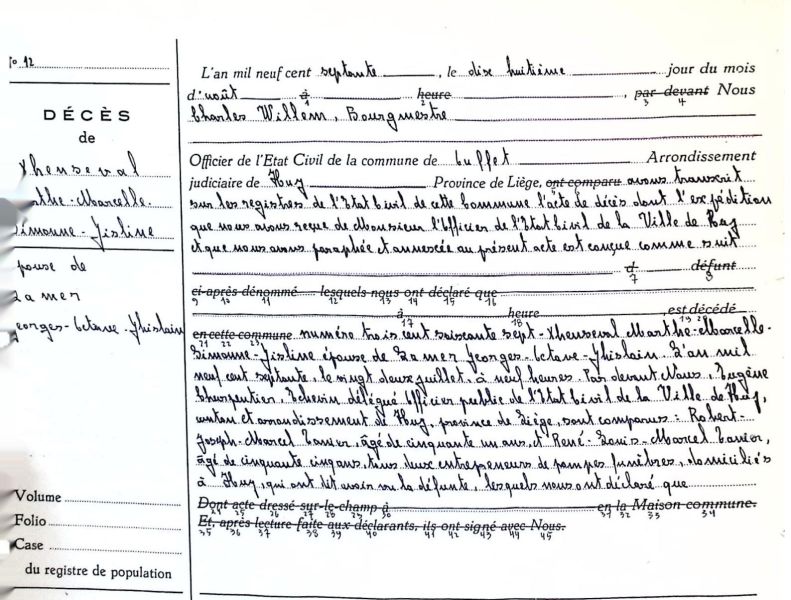 No 12
DÉCÈS
de
Xhenseval
Marthe-Marcelle-
Simonne-Gisline
épouse de
Lamer
Georges-Octave-Ghislain
Volume
Folio
Case
du registre de population
L'an mil neuf cent septante, le dix huitième jour du mois
d'août à heure, par devant Nous
1 2 3 4
Charles Willem, Bourgmestre
Officier de l'Etat Civil de la commune de Arrondissement
judiciaire de Huy Province de Liège, ont comparu avons transcrit
sur les registres de l'Etat Civil de cette Commune l'acte de décès dont l'expédition
que nous avons reçue de Monsieur l'Officier de l'Etat Civil de la Ville de Huy
et que nous avons paraphée et annexée au présent acte est conçue comme suit
d. défunt
7 8
ci-après dénommé lesquels nous ont déclaré que
9 10 11 12 13 14 15 16
à heure, est décédé
17 18 19 20
en cette commune numéro trois cent soixante sept - Xhenseval Marthe-Marcelle-
21 22 23
Simonne-Gisline épouse de Lamer Georges-Octave-Ghislain. L'an mil
neuf cent septante, le vingt deux juillet, à neuf heures. Par devant Nous, Eugène
Charpentier, Echevin délégué Officier public de l'Etat Civil de la Ville de Huy,
canton et arrondissement de Huy, province de Liège, sont comparus : Robert-
Joseph-Marcel Tanier, âgé de cinquante un ans, et René-Louis-Marcel Tanier,
âgé de cinquante cinq ans, tous deux entrepreneurs de pompes funèbres, domiciliés
à Huy, qui ont dit avoir vu la défunte, lesquels nous ont déclaré que
Dont acte dressé sur-le-champ à en la Maison commune.
24 25 26 27 28 29 30 31 32 33 34
Et, après lecture faite aux déclarants, ils ont signé avec Nous.
35 36 37 38 39 40 41 42 43 44 45